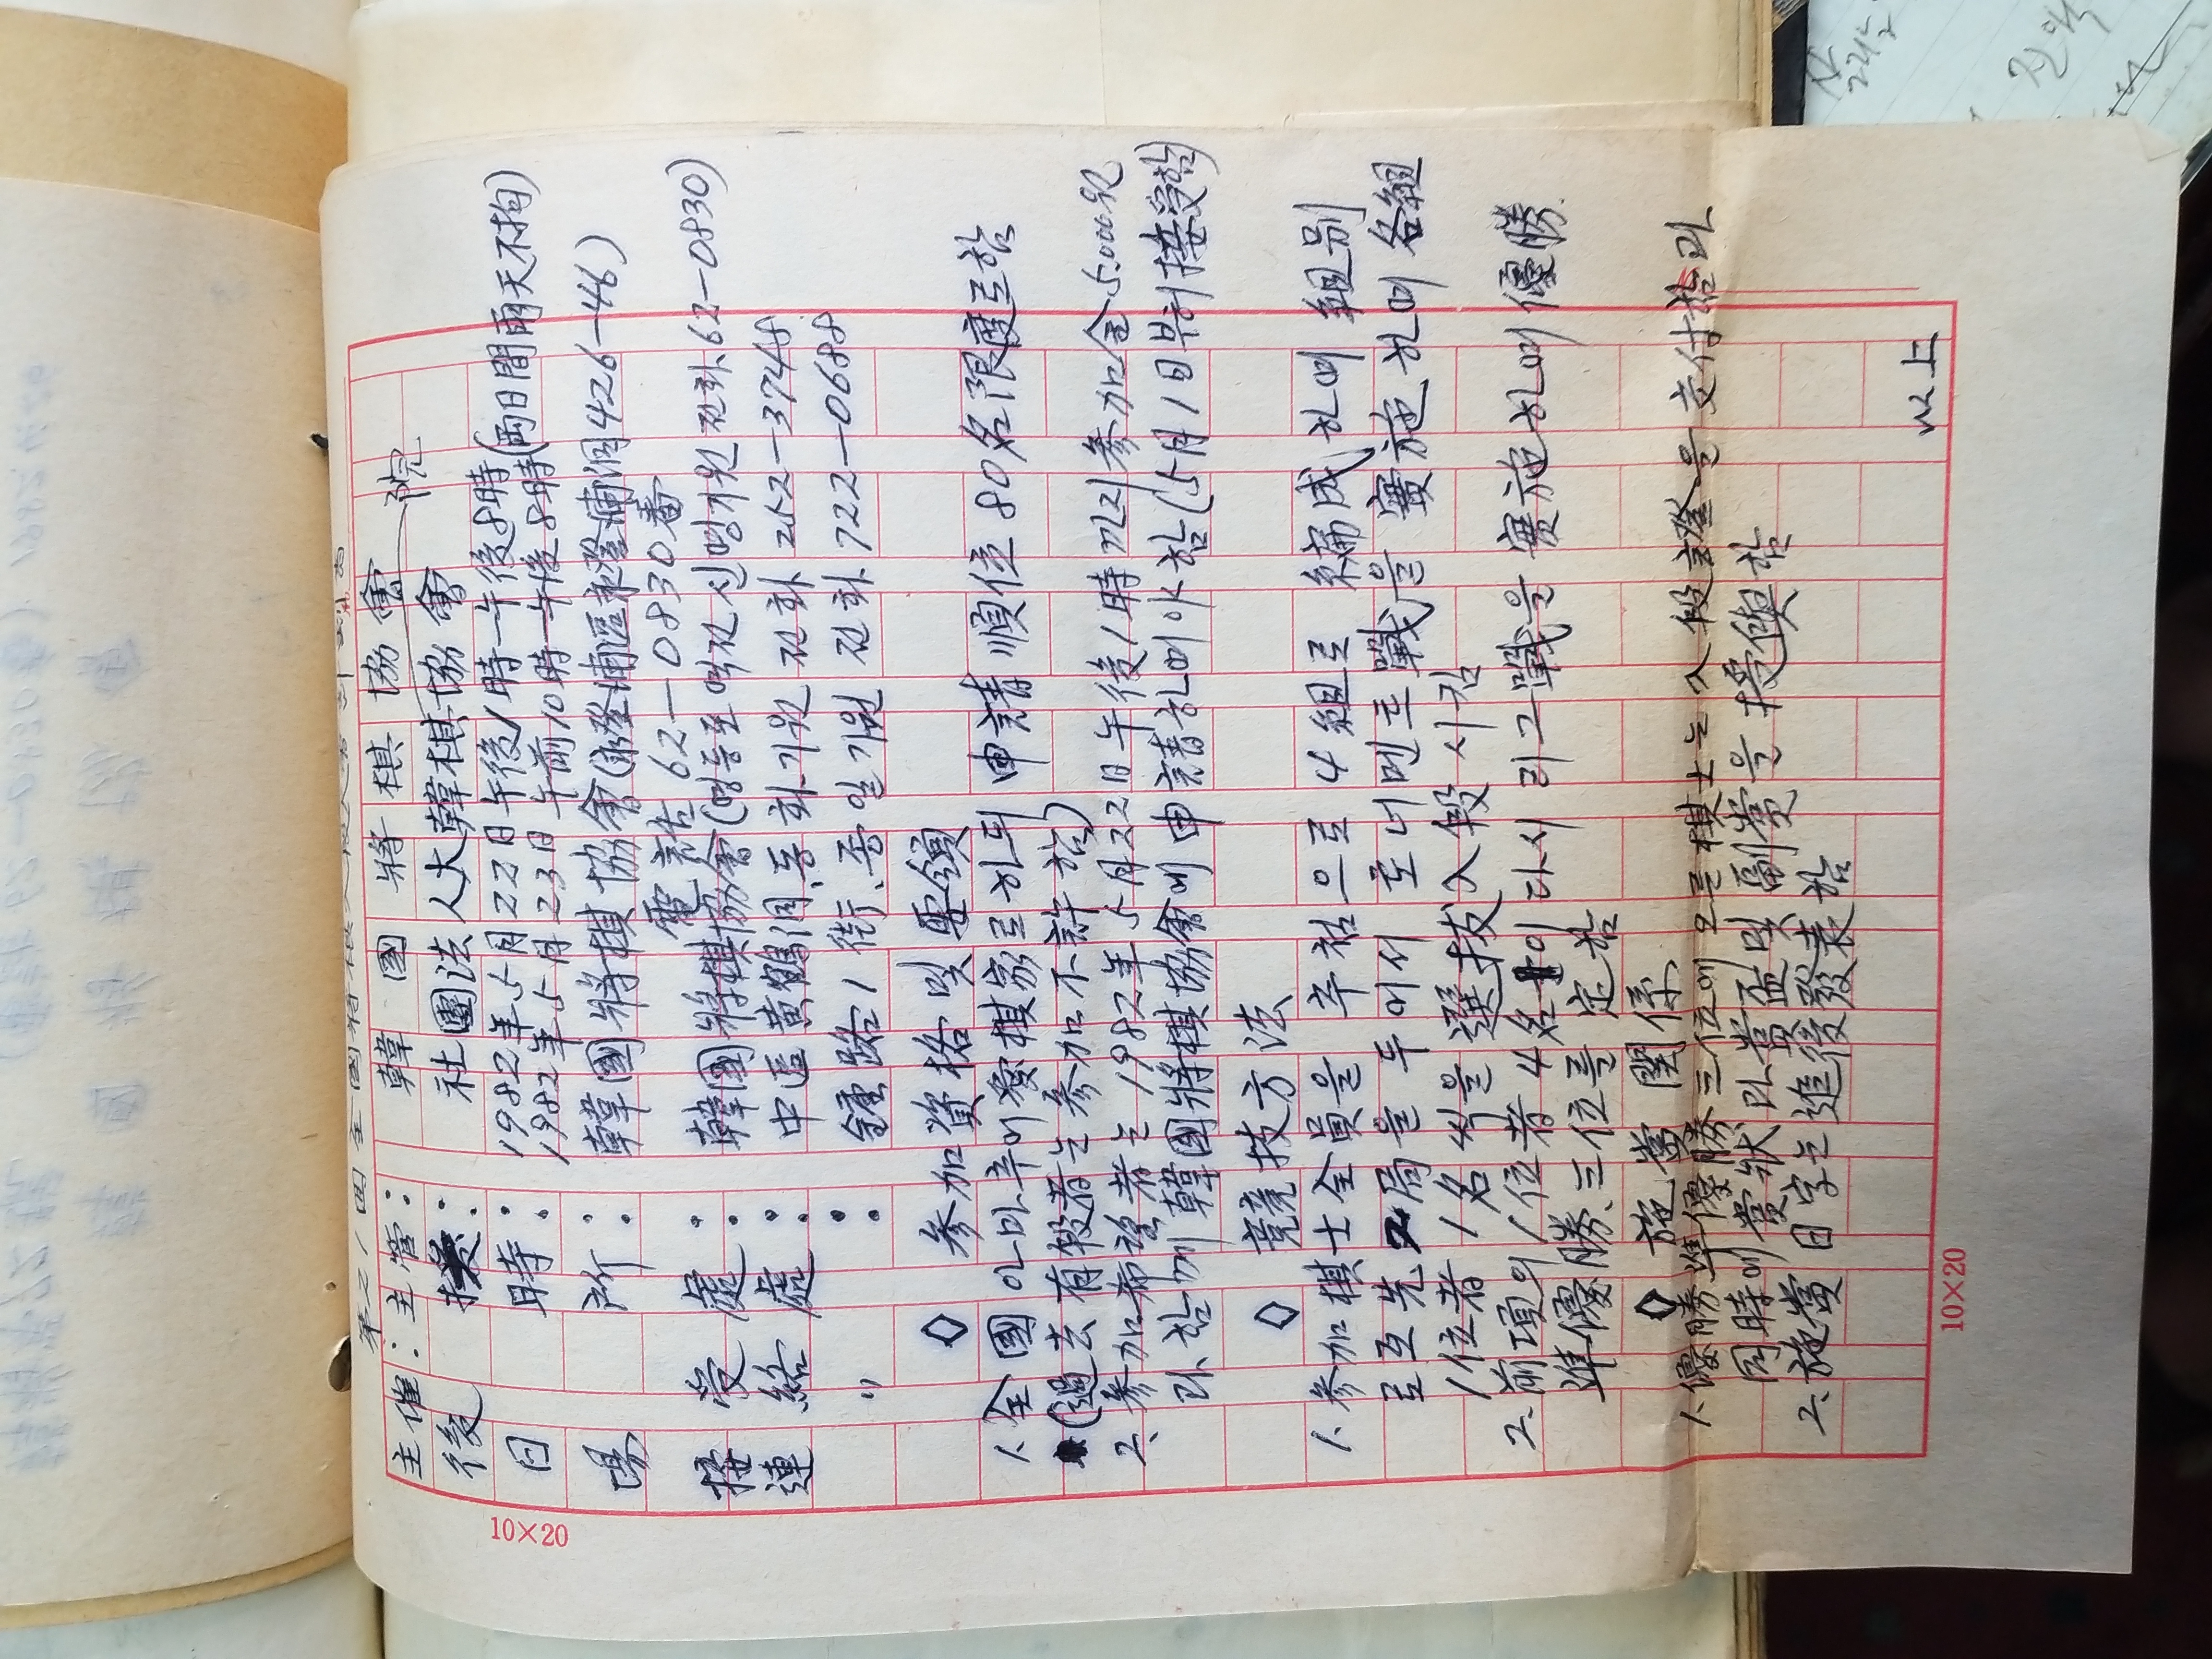 第21回 全國將棋
主催: 主管: 韓國將棋協會
後援: 社團法人大韓棋協會 院
日時: 1982年5月22日午後1時—午後8時(兩日間雨天不拘)
1982年5月23日 午前10時—午後8時
場所: 韓國將棋協會(永登浦區永登浦洞426—46)
電話 62—0830番
接受處: 韓國將棋協會(영등포역전 신명기원 전화 62—0830)
連絡處: 中區黃鶴洞, 동화기원 전화 252—3748
〃 : 鍾路1街, 종일기원 전화 722—0688
◇ 參加資格 및 要領
1. 全國 아마추어 愛棋家로 하되 申請順位 80名 限度로함
(過去有段者는 參加 不許함)
2. 參加希望者는 1982年5月22日午後1時까지 參加金 5.000원
과 함께 韓國將棋協會에 申請하여야 함(5月1日부터 接受함)
◇ 競技方法
1. 參加棋士全員을 추첨으로 4組로 編成하여 組別
로 互先 2局을 두어서 토너먼트戰을 實施하여 各組
1位者 1名씩을 選拔 入段시킴
2. 前項의 1位者 4名이 다시 리그戰을 實施하여 優勝.
準優勝, 三位를 定함
◇ 施賞 關係
1. 優勝 準優勝 三位에 오른 棋士는 入段證을 交付함과
同時에 賞狀과 賞盃 및 副賞을 授與함
2. 施賞日字는 追後發表함
以上
10×20
10×20